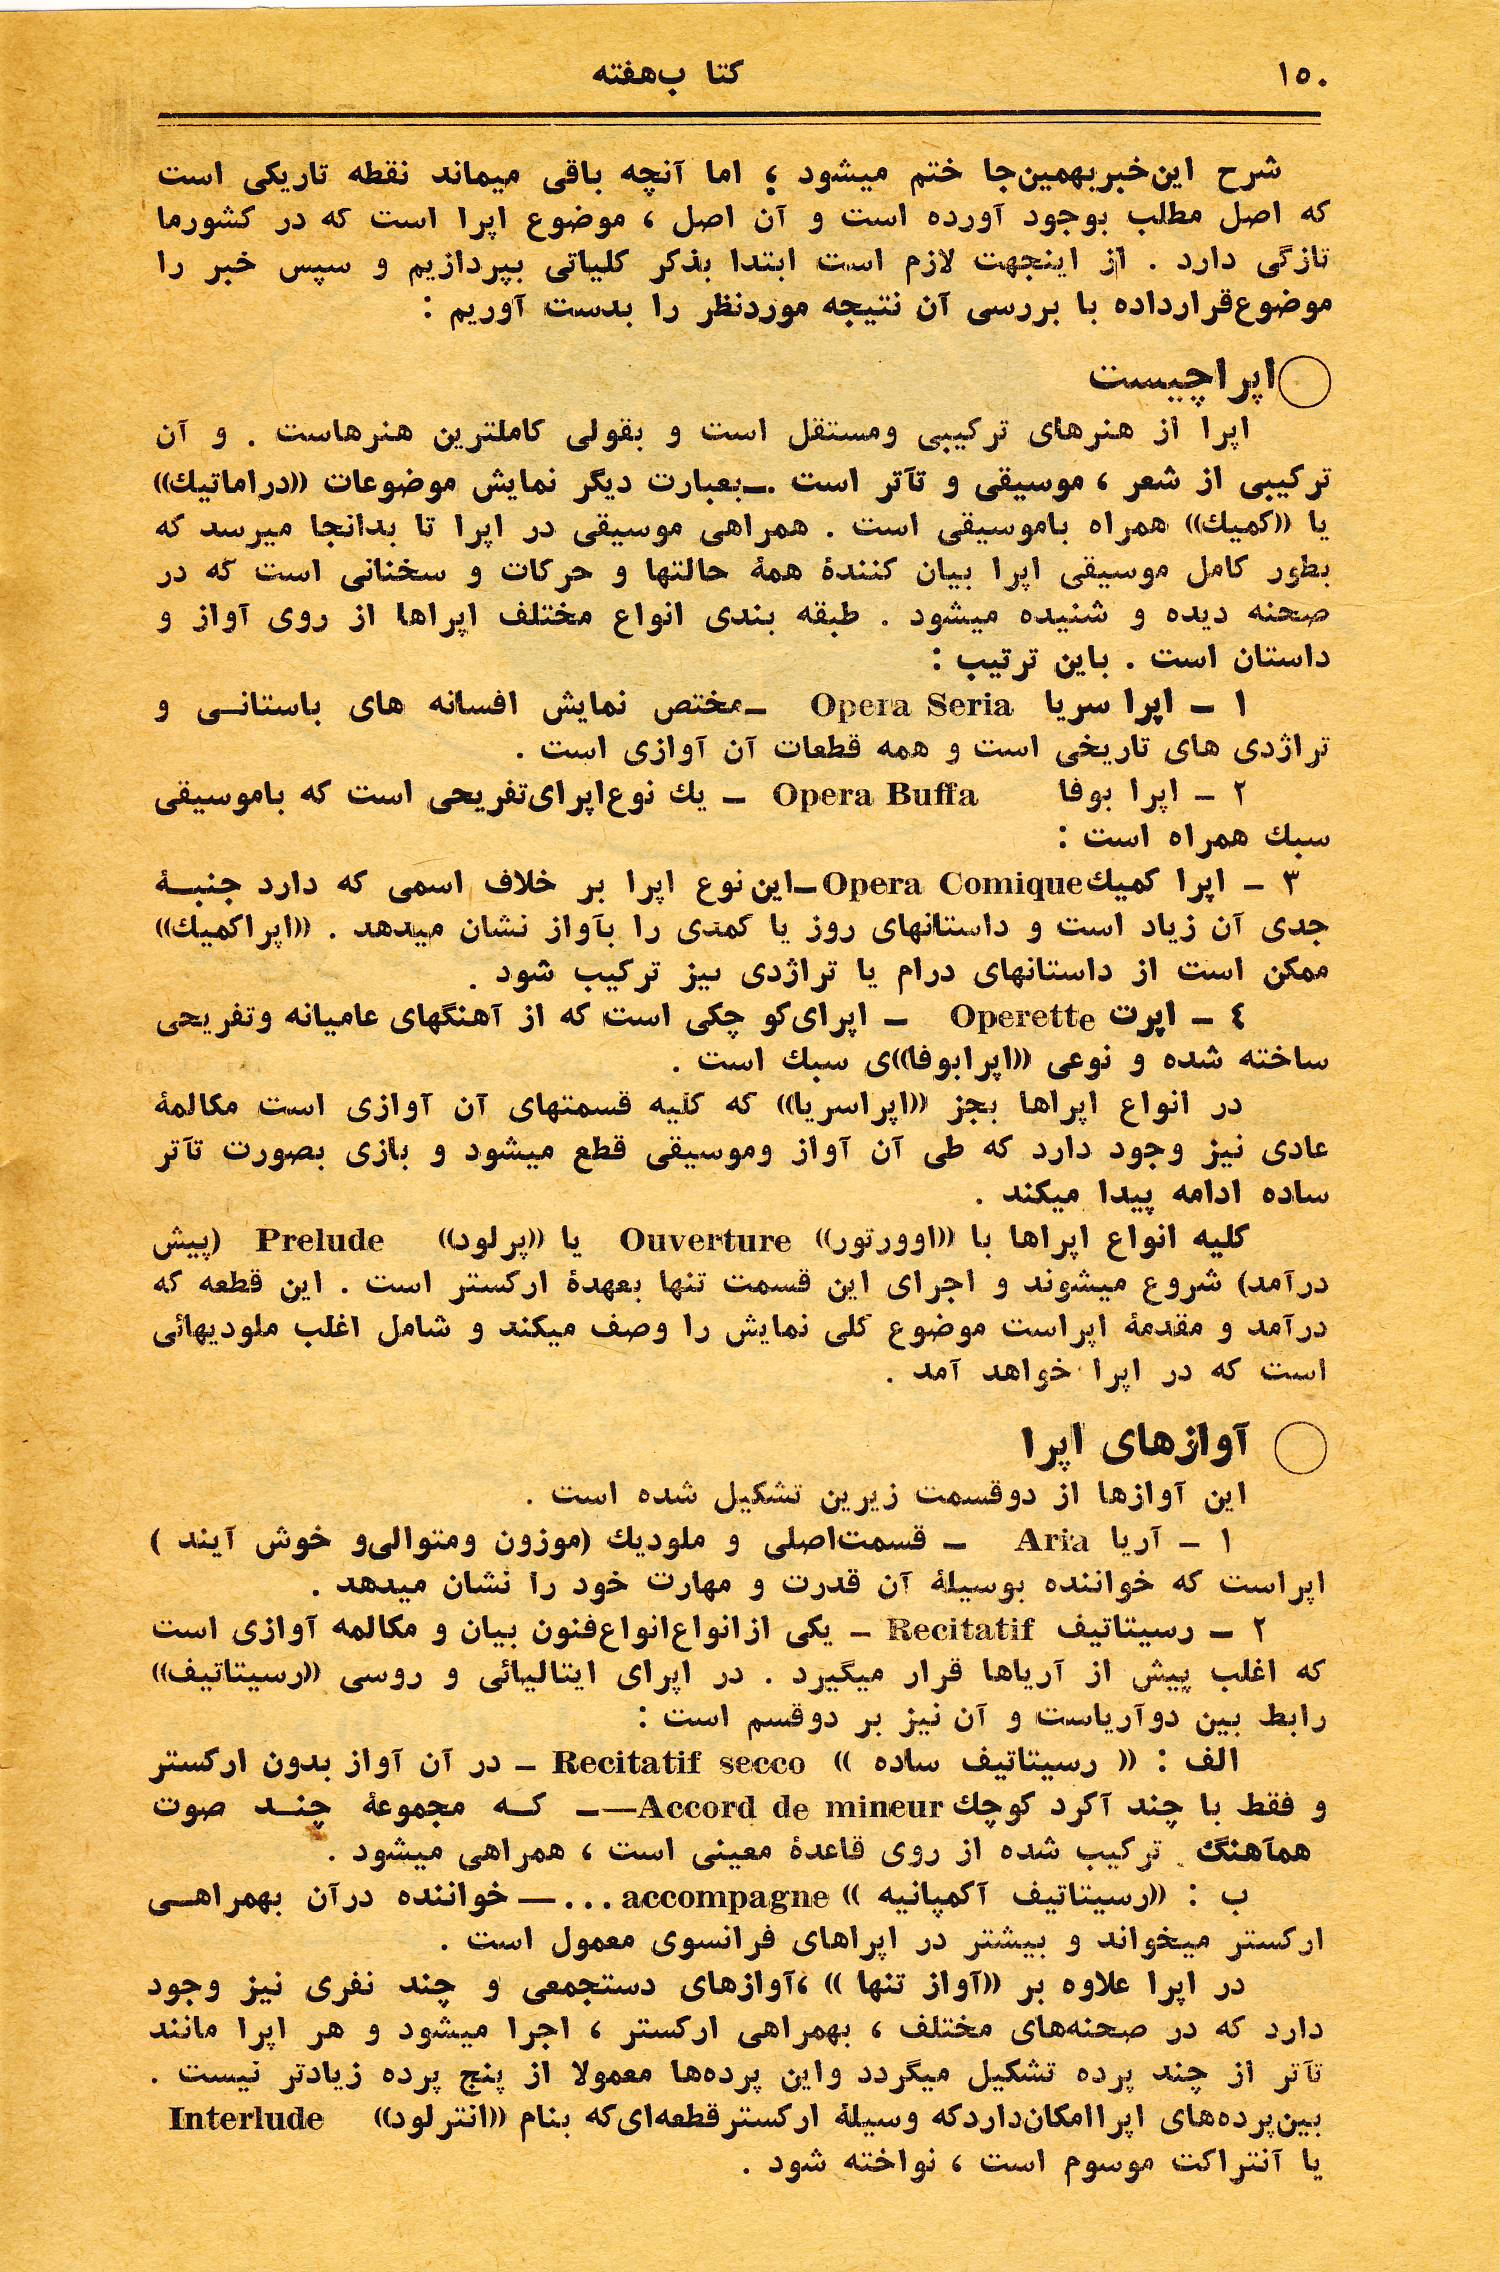 ۱۵۰
کتاب هفته
شرح این خبر بهمین‌جا ختم میشود ؛ اما آنچه باقی میماند نقطه تاریکی است
که اصل مطلب بوجود آورده است و آن اصل ، موضوع اپرا است که در کشورما
تازگی دارد . از اینجهت لازم است ابتدا بذکر کلیاتی بپردازیم و سپس خبر را
موضوع قرارداده با بررسی آن نتیجه موردنظر را بدست آوریم :
اپراچیست
اپرا از هنرهای ترکیبی ومستقل است و بقولی کاملترین هنرهاست . و آن
ترکیبی از شعر ، موسیقی و تآتر است .ـ بعبارت دیگر نمایش موضوعات ((دراماتیك))
یا ((کمیك)) همراه باموسیقی است . همراهی موسیقی در اپرا تا بدانجا میرسد که
بطور کامل موسیقی اپرا بیان کنندهٔ همهٔ حالتها و حرکات و سخنانی است که در
صحنه دیده و شنیده میشود . طبقه بندی انواع مختلف اپراها از روی آواز و
داستان است . باین ترتیب :
۱ ـ اپرا سریا Opera Seria ـ مختص نمایش افسانه های باستانـی و
تراژدی های تاریخی است و همه قطعات آن آوازی است .
۲ ـ اپرا بوفا Opera Buffa ـ یك نوع اپرای تفریحی است که باموسیقی
سبك همراه است :
۳ ـ اپرا کمیك Opera Comique ـ این نوع اپرا بر خلاف اسمی که دارد جنبـهٔ
جدی آن زیاد است و داستانهای روز یا کمدی را بآواز نشان میدهد . ((اپراکمیك))
ممکن است از داستانهای درام یا تراژدی نیز ترکیب شود .
٤ ـ اپرت Operette ـ اپرای کو چکی است که از آهنگهای عامیانه وتفریحی
ساخته شده و نوعی ((اپرابوفا))ی سبك است .
در انواع اپراها بجز ((اپراسریا)) که کلیه قسمتهای آن آوازی است مکالمهٔ
عادی نیز وجود دارد که طی آن آواز وموسیقی قطع میشود و بازی بصورت تآتر
ساده ادامه پیدا میکند .
کلیه انواع اپراها با ((اوورتور)) Ouverture یا ((پرلود)) Prelude (پیش
درآمد) شروع میشوند و اجرای این قسمت تنها بعهدهٔ ارکستر است . این قطعه که
درآمد و مقدمهٔ اپراست موضوع کلی نمایش را وصف میکند و شامل اغلب ملودیهائی
است که در اپرا خواهد آمد .
آوازهای اپرا
این آوازها از دوقسمت زیرین تشکیل شده است .
۱ ـ آریا Aria ـ قسمت‌اصلی و ملودیك (موزون ومتوالی‌و خوش آیند )
اپراست که خواننده بوسیلهٔ آن قدرت و مهارت خود را نشان میدهد .
۲ ـ رسیتاتیف Recitatif ـ یکی از انواع انواع فنون بیان و مکالمه آوازی است
که اغلب پیش از آریاها قرار میگیرد . در اپرای ایتالیائی و روسی ((رسیتاتیف))
رابط بین دوآریاست و آن نیز بر دوقسم است :
الف : (( رسیتاتیف ساده )) Recitatif secco ـ در آن آواز بدون ارکستر
و فقط با چند آکرد کوچك Accord de mineur —ـ کـه مجموعهٔ چنـد صوت
همآهنگ ترکیب شده از روی قاعدهٔ معینی است ، همراهی میشود .
ب : ((رسیتاتیف آکمپانیه )) accompagne ... — خواننده درآن بهمراهـی
ارکستر میخواند و بیشتر در اپراهای فرانسوی معمول است .
در اپرا علاوه بر ((آواز تنها )) ،آوازهای دستجمعی و چند نفری نیز وجود
دارد که در صحنه‌های مختلف ، بهمراهی ارکستر ، اجرا میشود و هر اپرا مانند
تآتر از چند پرده تشکیل میگردد واین پرده‌ها معمولا از پنج پرده زیادتر نیست .
بین‌پرده‌های اپراامکان‌داردکه وسیلهٔ ارکسترقطعه‌ای‌که بنام ((انترلود)) Interlude
یا آنتراکت موسوم است ، نواخته شود .